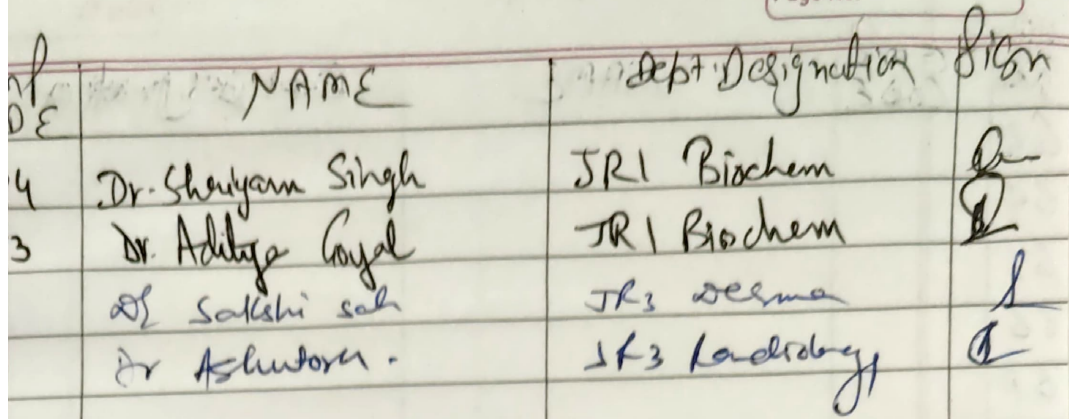 NAME Dept. Designation Sign
DE
4 Dr. Shriyam Singh JR1 Biochem
3 Dr. Aditya Goyal JR1 Biochem
Dr Sakshi sah JR3 Derma
Dr Ashutosh. JR3 Radiology